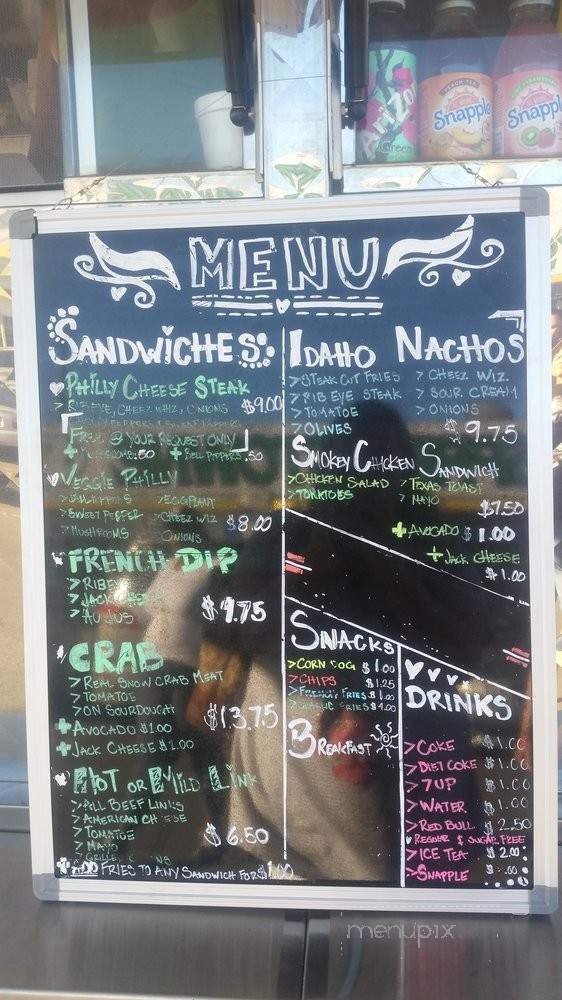 AriZona
Green
Snapple
Snapple
MENU
SANDWICHES
PHILLY CHEESE STEAK
CHEEZ WHIZ, ONIONS $9.00
FREE @ YOUR REQUEST ONLY
.50 + BELL PEPPERS .50
VEGGIE PHILLY
> EGGPLANT
> SWEET PEPPER > CHEEZ WIZ $8.00
> MUSHROOMS ONIONS
FRENCH DIP
> RIBEYE
> JACK CHEESE
> AU JUS $9.75
CRAB
> REAL SNOW CRAB MEAT
> TOMATOE
> ON SOURDOUGH $13.75
+ AVOCADO $1.00
+ JACK CHEESE $1.00
HOT OR MILD LINK
> ALL BEEF LINKS
> AMERICAN CHEESE
> TOMATOE $6.50
> MAYO
+ ADD FRIES TO ANY SANDWICH FOR $1.00
IDAHO NACHOS
> STEAK CUT FRIES > CHEEZ WIZ.
> RIB EYE STEAK > SOUR CREAM
> TOMATOE > ONIONS
> OLIVES $9.75
SMOKEY CHICKEN SANDWICH
> CHICKEN SALAD > TEXAS TOAST
> TOMATOES > MAYO
$7.50
+ AVOCADO $1.00
+ JACK CHEESE
$1.00
SNACKS
> CORN DOG $1.00
> CHIPS $1.25
> FRENCH FRIES $1.00
> GARLIC FRIES $4.00
BREAKFAST
DRINKS
> COKE $1.00
> DIET COKE $1.00
> 7UP $1.00
> WATER $1.00
> RED BULL $2.50
REGULAR & SUGAR FREE
> ICE TEA $2.00
> SNAPPLE
menupix